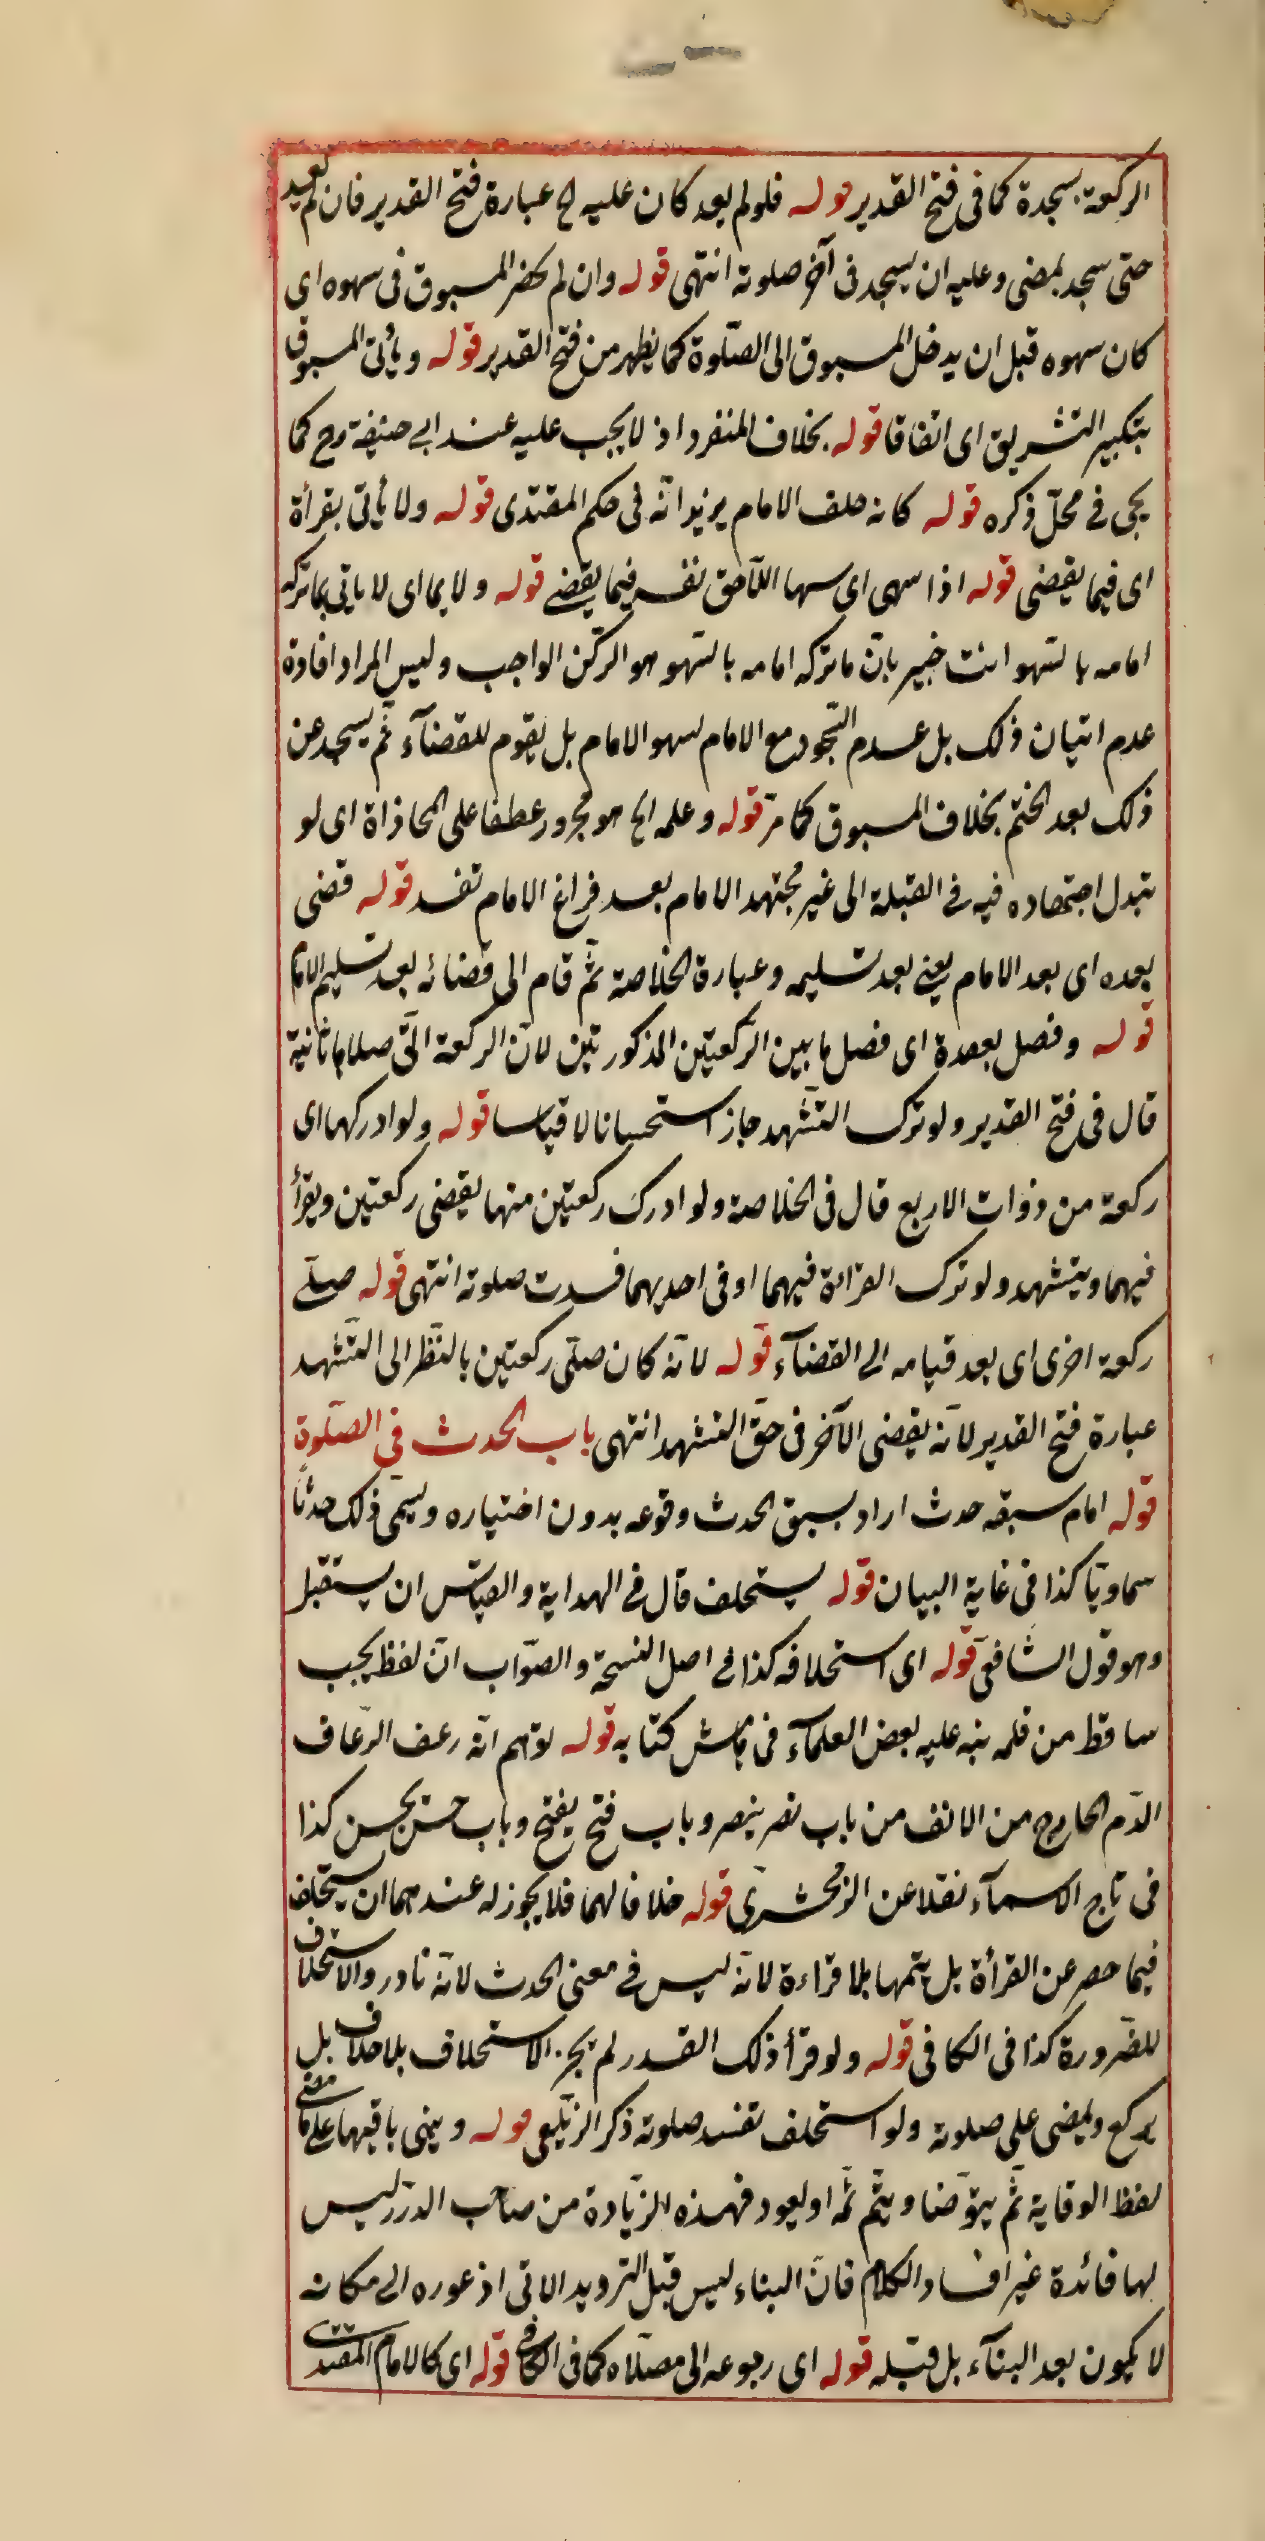 الركعة بسجدة كما فى فتح القدير قوله فلو لم يعد كان عليه الخ عبارة فتح القدير فان لم يعيد
حتى سجد يمضى وعليه ان يسجد فى آخر صلوته انتهى قوله وان لم يحضر المسبوق فى سهوه اى
كان سهوه قبل ان يدخل المسبوق الى الصّلوة كما يظهر من فتح القدير قوله ويأتى المسبوق
بتكبير التشريق اى اتفاقا قوله بخلاف المنفرد اذ لا يجب عليه عند ابى حنيفة رح كما
يجى فى محلّ ذكره قوله كانه خلف الامام يريد انّه فى حكم المقتدى قوله ولا يأتى بقرأة
اى فيما يقضى قوله اذا سهى اى سها اللّاحق نفسه فيما يقضى قوله ولا بما اى لا ياتى بما تركه
امامه بالسّهو انت خبير بانّ ما تركه امامه بالسّهو هو الركن الواجب وليس المراد افادة
عدم اتيان ذلك بل عدم السّجود مع الامام لسهو الامام بل يقوم للقضآء ثم يسجد عن
ذلك بعد الختم بخلاف المسبوق كما مرّ قوله وعلمه الخ هو مجرور عطفا على المحاذاة اى لو
تبدل اجتهاده فيه فى القبلة الى غير مجتهد الامام بعد فراغ الامام تفسد قوله قضى
بعده اى بعد الامام يعنى بعد تسليمه وعبارة الخلاصة ثمّ قام الى قضائه بعد تسليم الامام
قوله وفصل بقعدة اى فصل ما بين الرّكعتين المذكورتين لانّ الركعة الّتى صلاها ثانية
قال فى فتح القدير ولو ترك التّشهد جاز استحسانا لا قياسا قوله ولو ادركها اى
ركعة من ذوات الاربع قال فى الخلاصة ولو ادرك ركعتين منها يقضى ركعتين ويقرأ
فيهما ويتشهد ولو ترك القراءة فيهما او فى احديهما فسدت صلوته انتهى قوله صلّى
ركعة اخرى اى بعد قيامه الى القضآء قوله لانّه كان صلّى ركعتين بالنّظر الى التّشهد
عبارة فتح القدير لانّه يقضى الآخر فى حقّ التشهد انتهى باب الحدث فى الصّلوة
قوله امام سبقه حدث اراد بسبق الحدث وقوعه بدون اختياره ويسمّى ذلك حدثا
سماويّا كذا فى غاية البيان قوله يستخلف قال فى الهداية والقياس ان يستقبل
وهو قول الشّافعىّ قوله اى استخلافه كذا فى اصل النسخة والصّواب انّ لفظ يجب
ساقط من قلمه نبه عليه بعض العلمآء فى هامش كتابه قوله توهم انّه رعف الرّعاف
الدّم الخارج من الانف من باب نصر ينصر وباب فتح يفتح وباب حسن يحسن كذا
فى تاج الاسمآء نقلا عن الزمخشرىّ قوله خلافا لهما فلا يجوز له عندهما ان يستخلف
فيما حصر عن القرأة بل يتمها بلا قراءة لانّه ليس فى معنى الحدث لانّه نادر والاستخلاف
للضّرورة كذا فى الكافى قوله ولو قرأ ذلك القدر لم يجز الاستخلاف بلا خلاف بل
يركع ويمضى على صلوته ولو استخلف تفسد صلوته ذكر الزيلعى قوله ويبنى باقيها على ما مضى
لفظ الوقاية ثمّ يتوّضا ويتّم ثمّه او يعود فهذه الزيّادة من صاحب الدرر ليس
لها فائدة غير افساد الكلام فانّ البناء ليس قبل الترديد الاتى اذ عوده الى مكانه
لا يكون بعد البنآء بل قبله قوله اى رجوعه الى مصلّاه كما فى الكافى قوله اى كالامام المقتدى